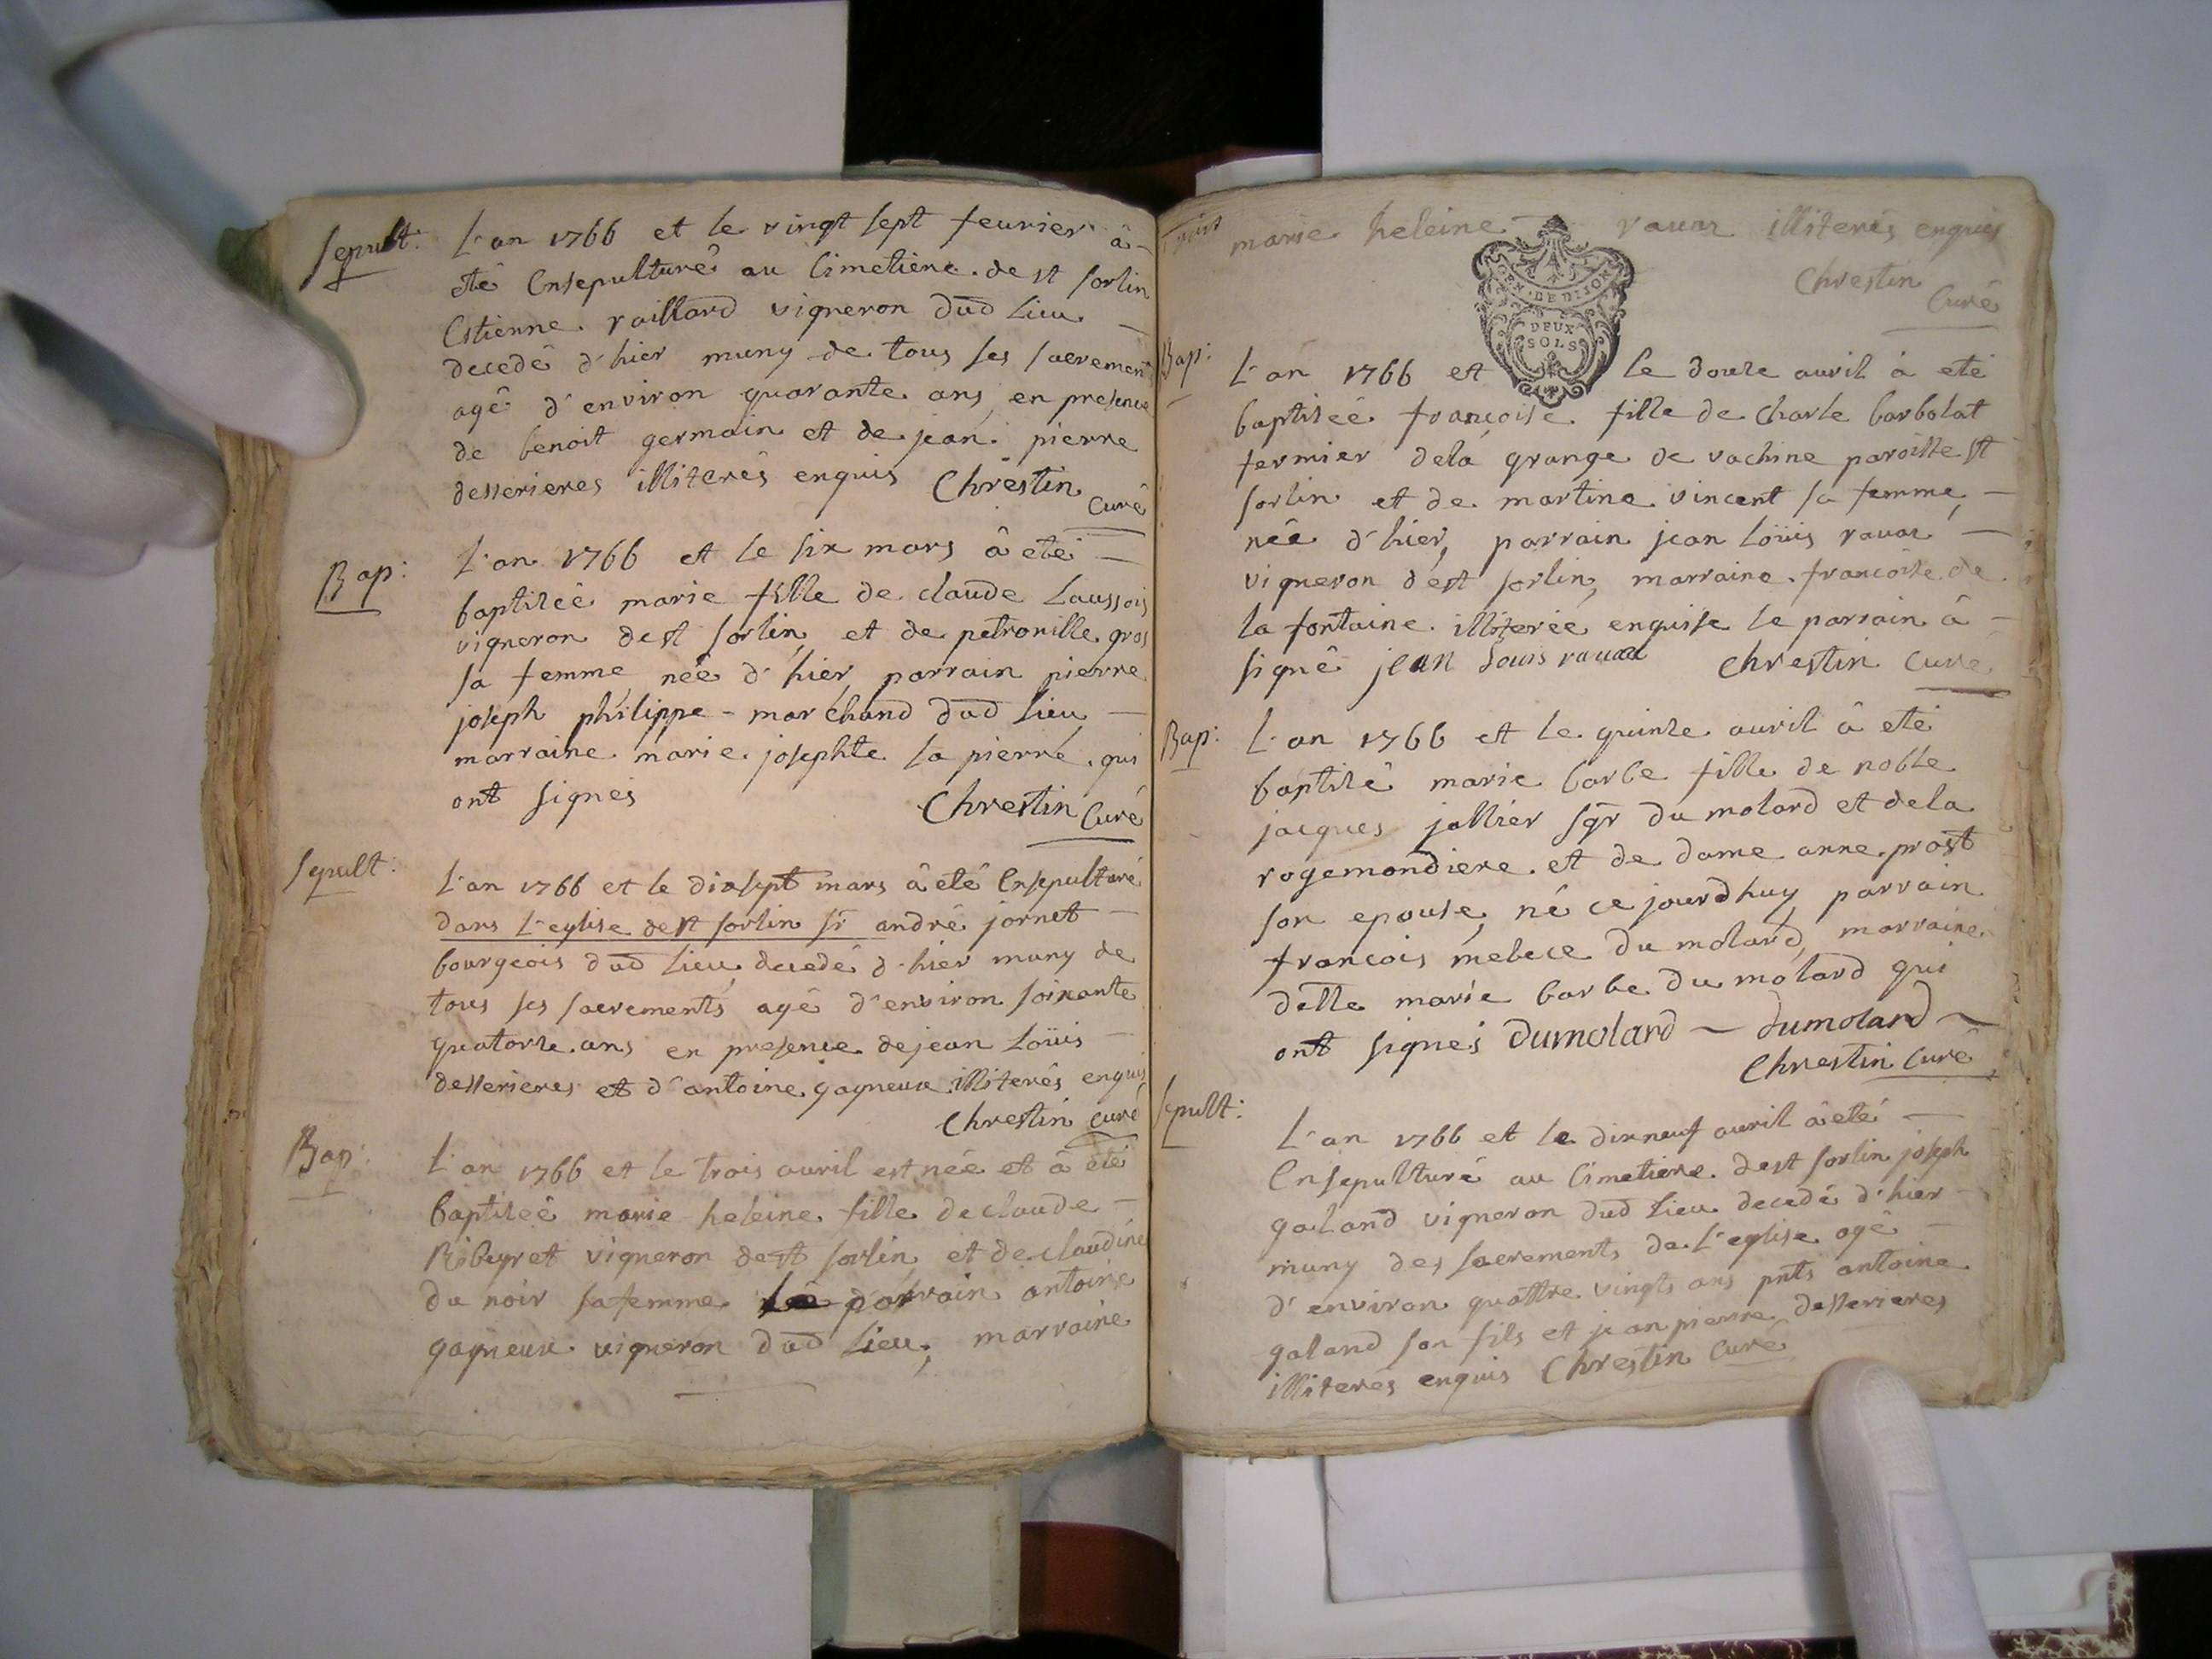 Sepult:
L'an 1766 et le vingt sept feurier â
eté Ensepulturé au Cimetiere de st sorlin
Estienne vaillard vigneron dud Lieu
decedé d'hier muny de tous ses sacrements
agé d'environ quarante ans, en presence
de benoit germain et de jean pierre
desserieres illiterés enquis Chrestin
Curé
Bap:
L'an 1766 et le six mars â eté
baptisée marie fille de claude Laussois
vigneron de st sorlin, et de petronille gros
sa femme née d'hier, parrain pierre
joseph philippe - marchand dud Lieu
marraine marie josephte la pierre, qui
ont signés Chrestin Curé
Sepult:
L'an 1766 et le dixsept mars â eté Ensepulturé
dans L'eglise de st sorlin sr andré jornet
bourgeois dud Lieu, decedé d'hier muny de
tous ses sacrements agé d'environ soixante
quatorze ans en presence de jean Loüis
desserieres et d'antoine gagneux illiterés enquis
Chrestin curé
Bap:
L'an 1766 et le trois auril est née et â eté
baptisée marie heleine fille de claude
Ribeyret vigneron de st sorlin et de claudine
du noir sa femme parrain antoine
gagneux vigneron dud Lieu, marraine
marie heleine ravaz illiterés enquis
Chrestin
Curé
GEN. DE DIJON
DEUX
SOLS
Bap:
L'an 1766 et le douze auril à eté
baptisée françoise fille de Charle barbolat
fermier dela grange de vachine paroisse st
sorlin et de martine vincent sa femme,
née d'hier, parrain jean Loüis ravaz
vigneron de st sorlin, marraine francoise de
la fontaine illiterée enquise le parrain â
signé jean Louis ravaz Chrestin Curé
Bap:
L'an 1766 et le quinze auril â eté
baptisé marie barbe fille de noble
jacques jallier sgr du molard et dela
rogemondiere et de dame anne prost
son epouse, né ce jourdhuy parrain
francois mebece du molard, marraine
delle marie barbe du molard qui
ont signés Dumolard ~ dumolard ~
Chrestin Curé
Sepult:
L'an 1766 et le dixneuf auril â eté
Ensepulturé au Cimetiere de st sorlin joseph
galand vigneron dud Lieu decedé d'hier
muny des sacrements de L'eglise agé
d'environ quattre vingts ans pnts antoine
galand son fils et jean pierre desserieres
illiterés enquis Chrestin Curé